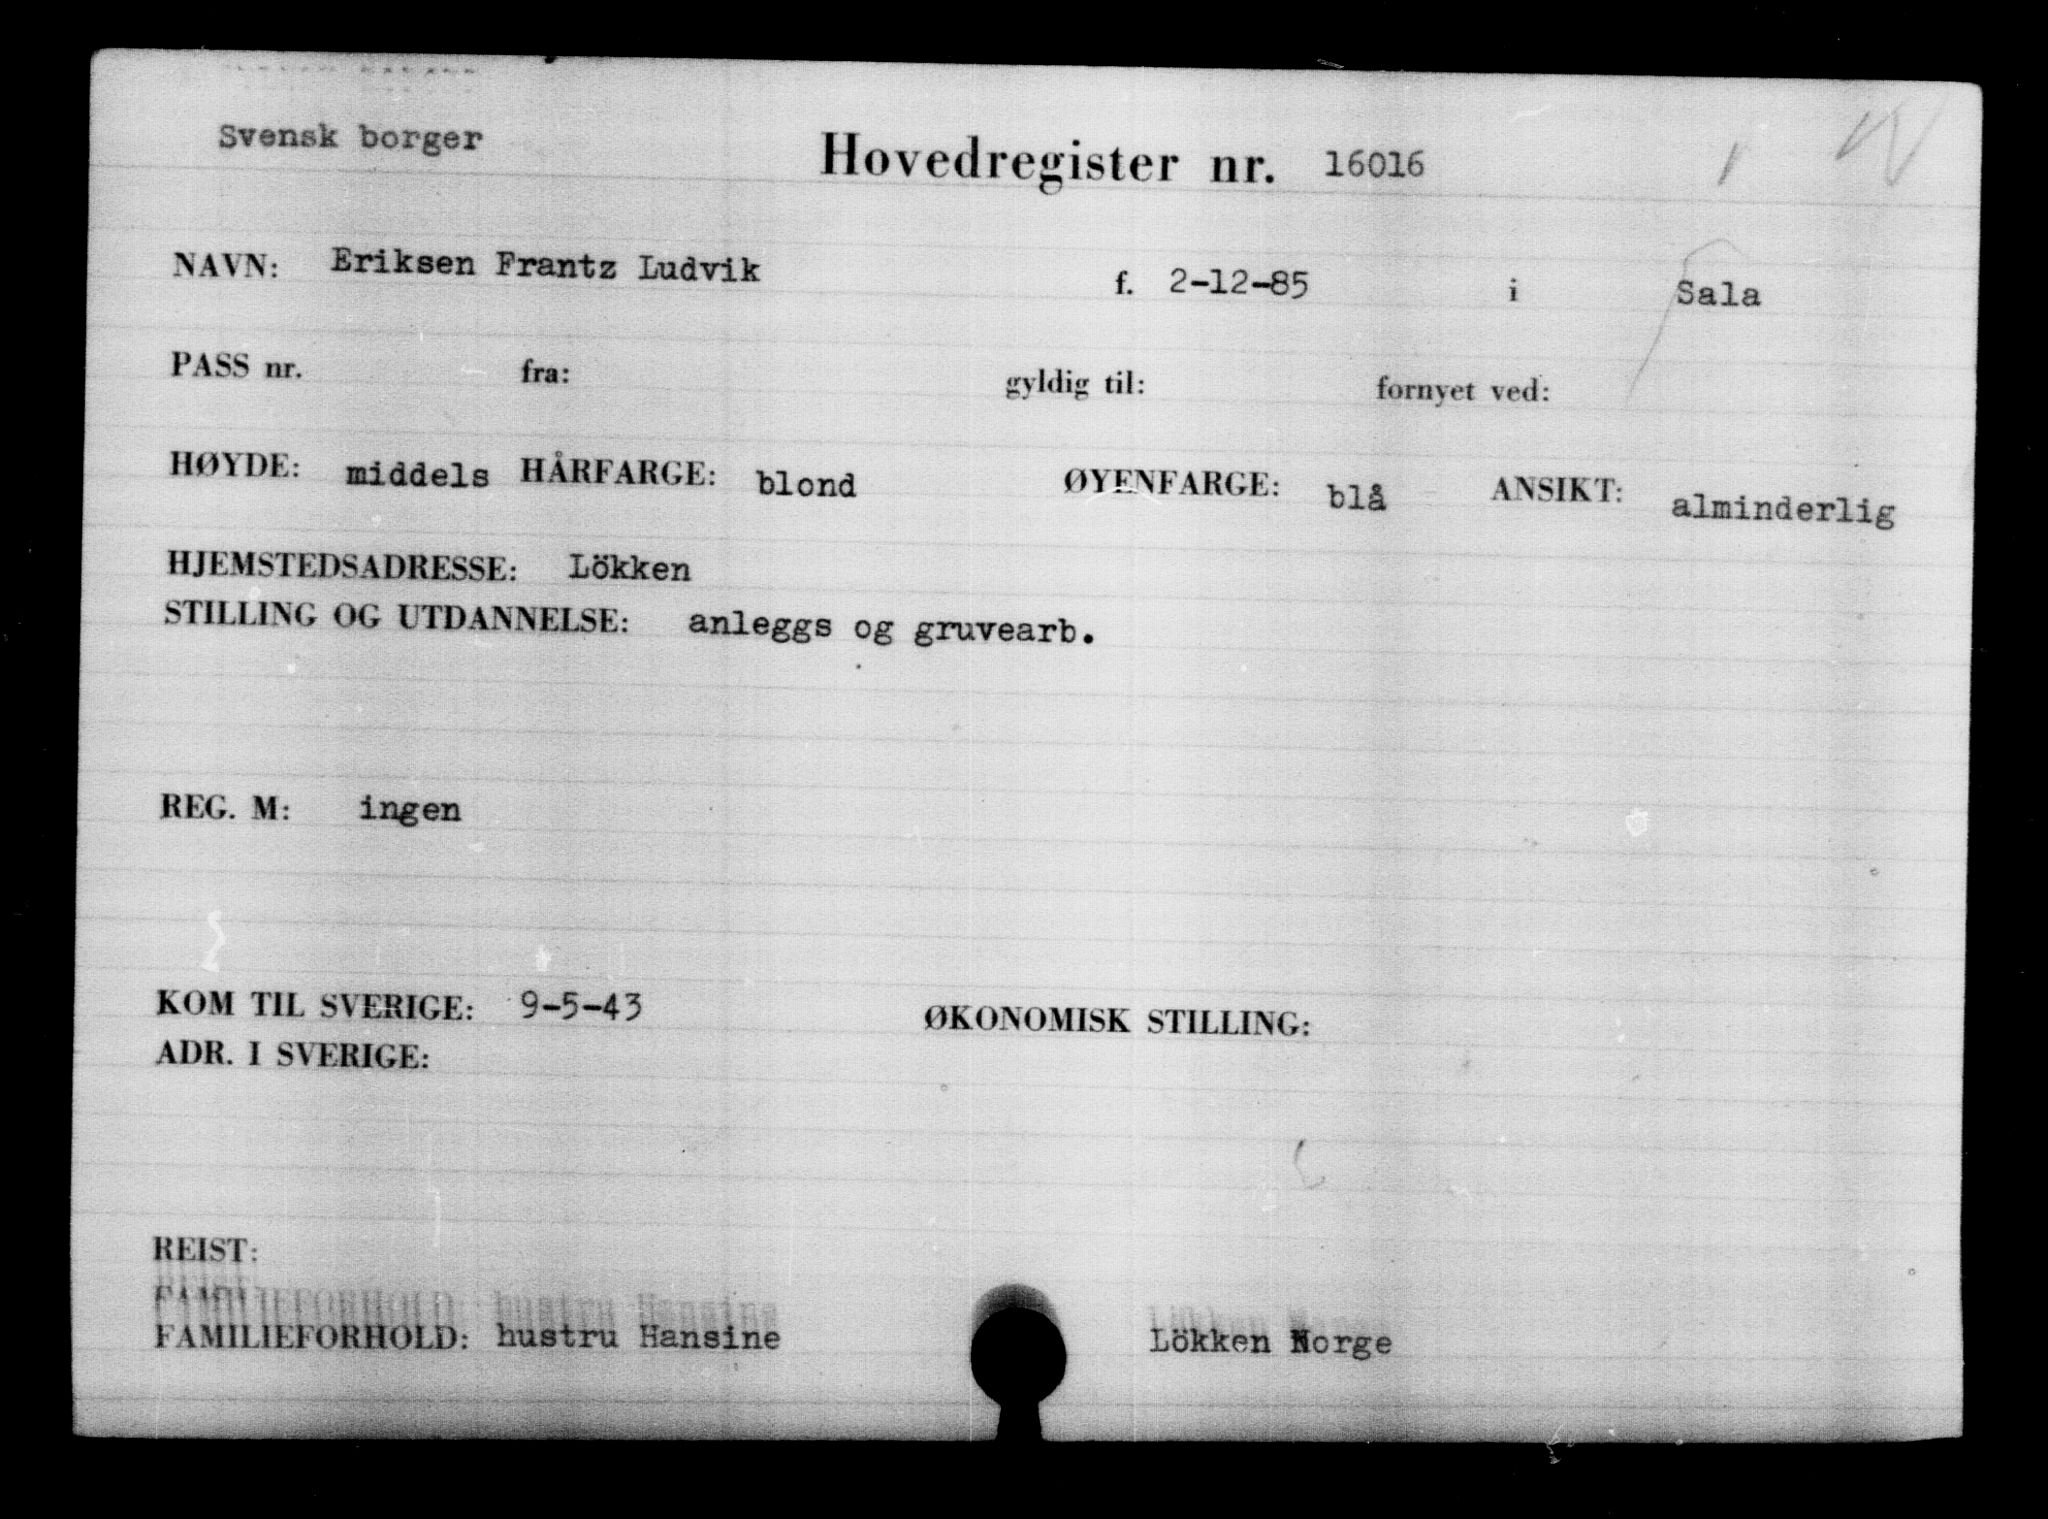 Svensk borger
Hovedregister nr. 16016
NAVN: Eriksen Frantz Ludvik f. 2-12-85 i Sala
PASS nr. fra: gyldig til: fornyet ved:
HØYDE: middels HÅRFARGE: blond ØYENFARGE: blå ANSIKT: alminderlig
HJEMSTEDSADRESSE: Lökken
STILLING OG UTDANNELSE: anleggs og gruvearb.
REG. M: ingen
KOM TIL SVERIGE: 9-5-43 ØKONOMISK STILLING:
ADR. I SVERIGE:
REIST:
FAMILIEFORHOLD: hustru Hansine Lökken Norge